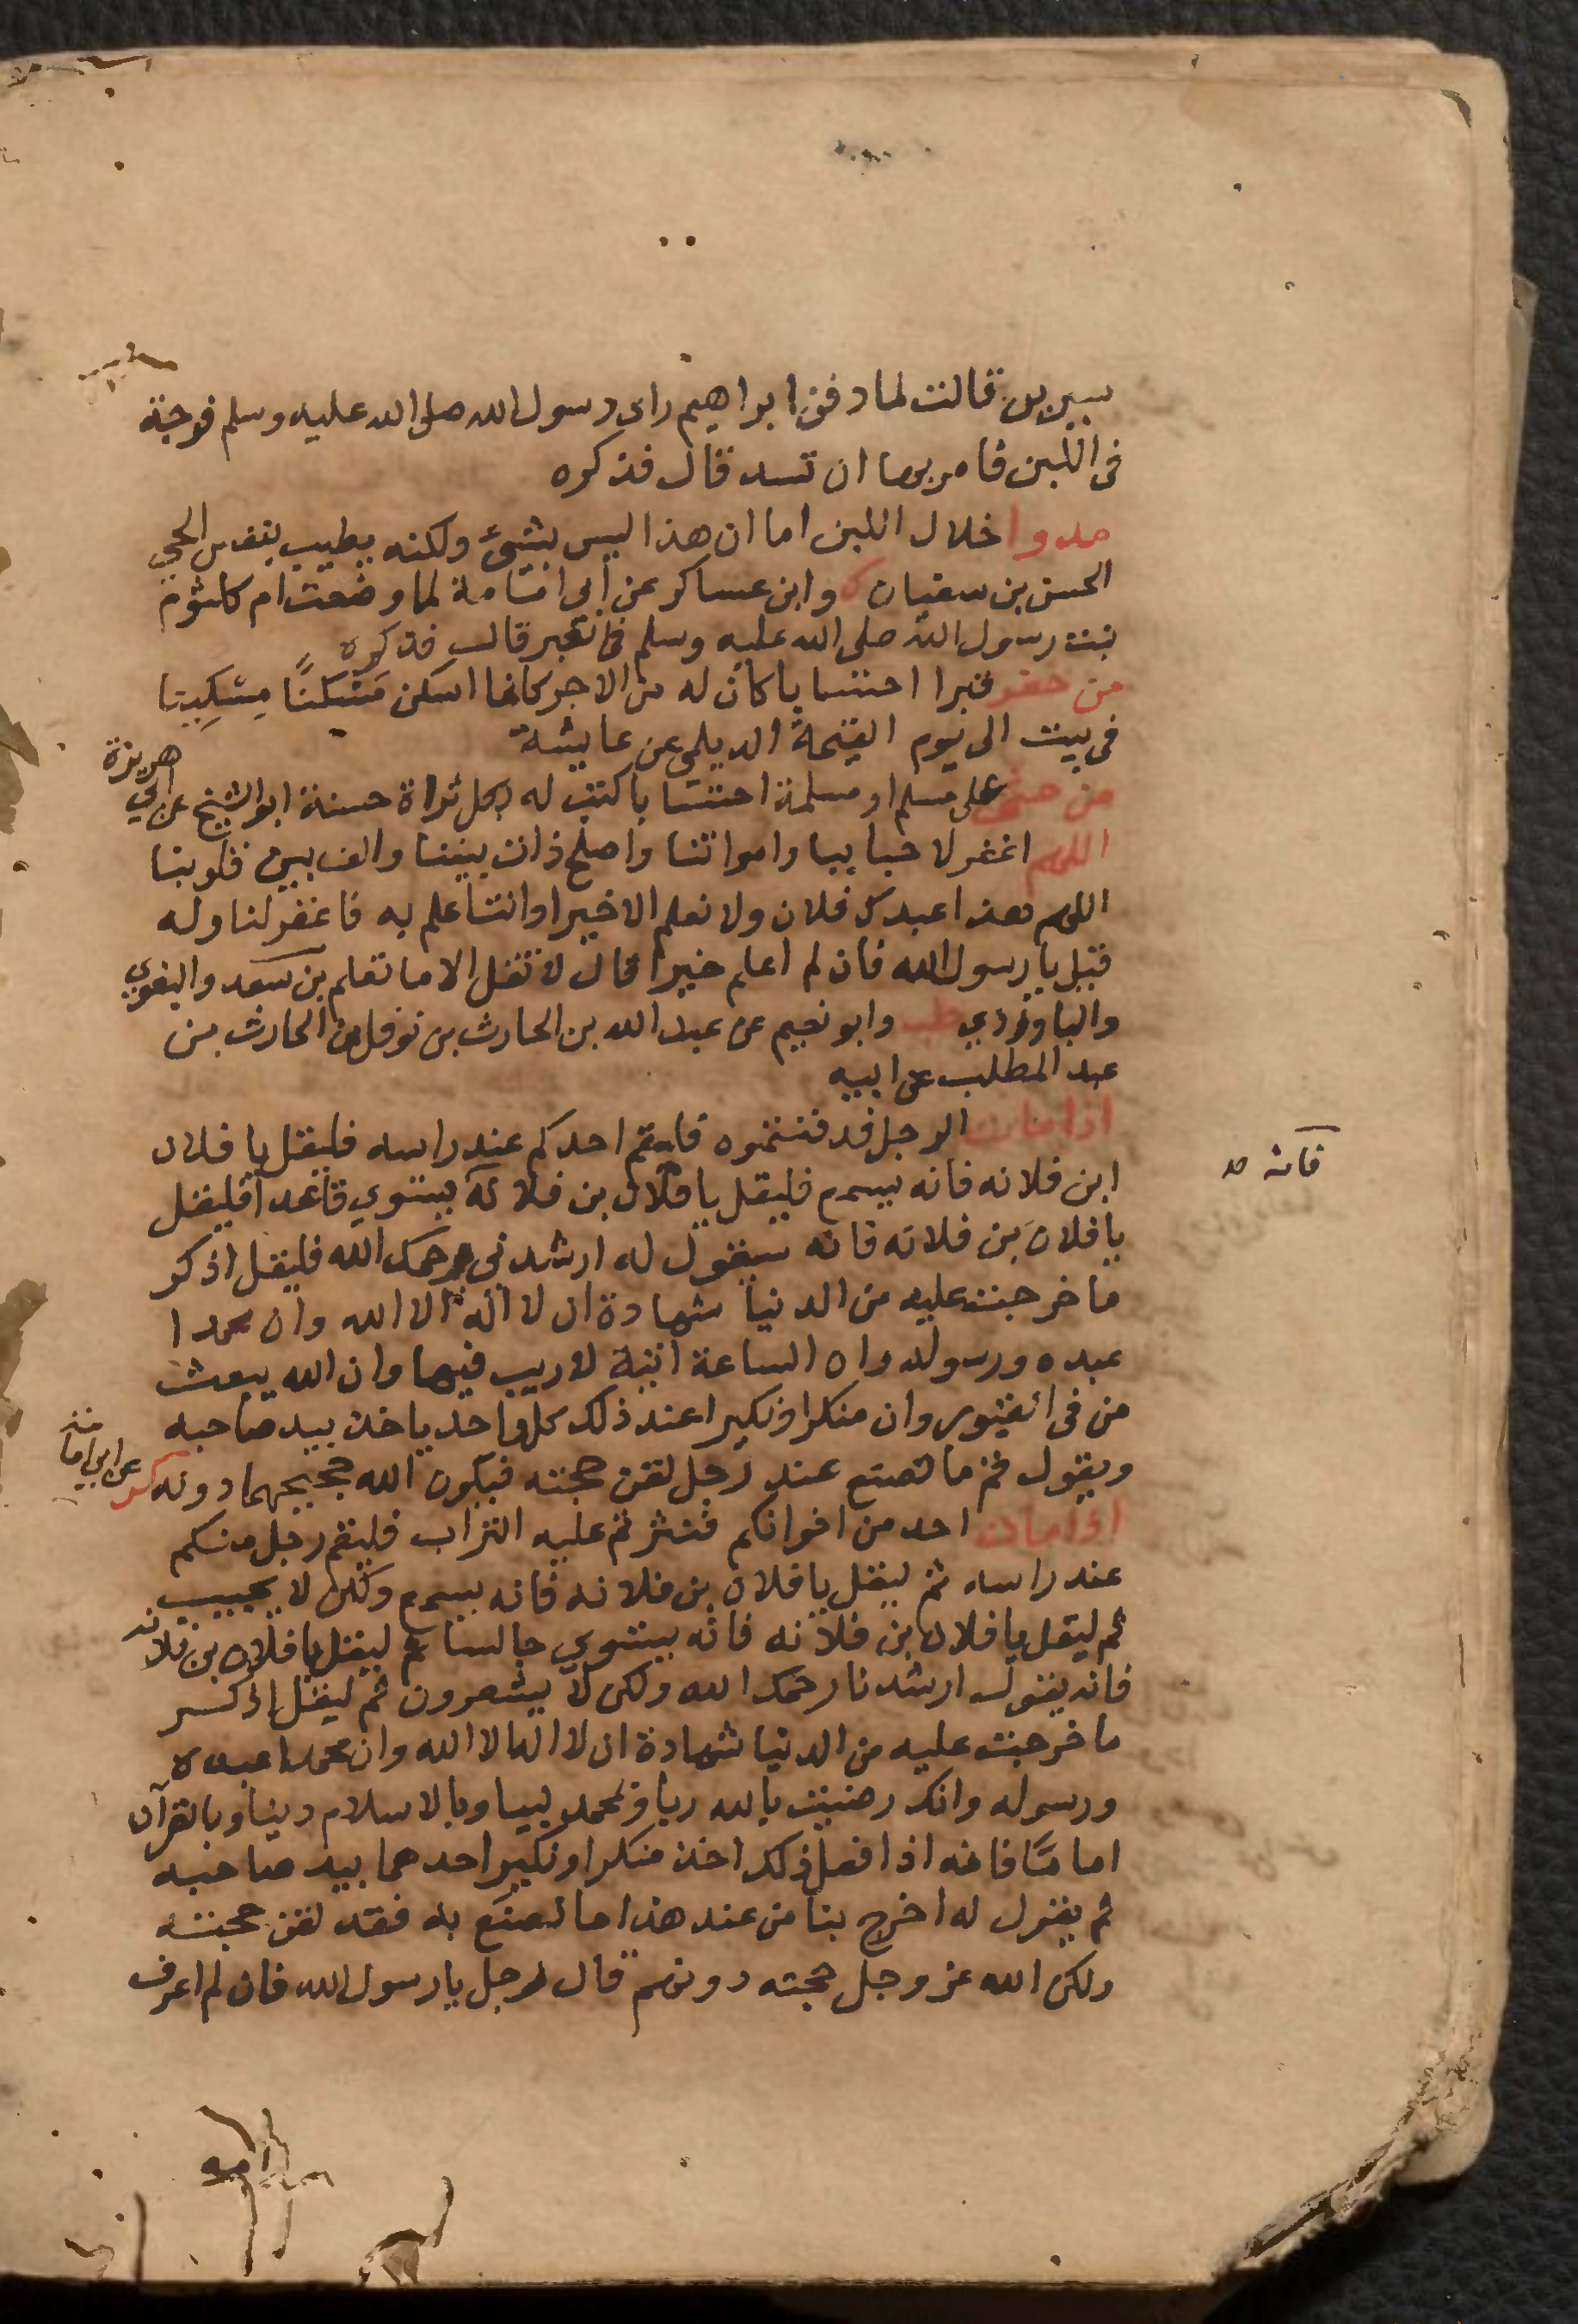 سيرين قالت لما دفن ابراهيم راى رسول الله صلى الله عليه وسلم فرجة
فى اللبن فامر بها ان تسد قال فذكره
سدوا خلال اللبن اما ان هذا ليس بشئ ولكنه يطيب بنفس الحي
الحسن بن سفيان ك وابن عساكر عن ابى امامة لما وضعت ام كلثوم
بنت رسول الله صلى الله عليه وسلم فى القبر قال فذكره
من حفر قبرا احتسابا كان له من الاجر كانما اسكن مسكنا مسكينا
فى بيت الى يوم القيمة الديلمى عن عايشة
من حثى على مسلم او مسلمة احتسابا كتب له بكل ثراة حسنة ابو الشيخ عن ابي
هريرة
اللهم اغفر لاحيايبا وامواتنا واصلح ذات بيننا والف بين قلوبنا
اللهم هذا عبدك فلان ولا نعلم الا خيرا وانت اعلم به فاغفر لنا وله
قيل يا رسول الله فان لم اعلم خيرا قال لا تقل الا ما تعلم بن سعد والبغوي
والباوردي طب وابو نعيم عن عبد الله بن الحارث بن نوفل بن الحارث بن
عبد المطلب عن ابيه
اذا مات الرجل فدفنتموه فليقم احدكم عند راسه فليقل يا فلان
فانه
ابن فلانه فانه يسمع فليقل يا فلان بن فلانه يستوي قاعدا فليقل
يا فلان بن فلانه فانه سيقول له ارشدنى يرحمك الله فليقل اذكر
ما خرجت عليه من الدنيا شهادة ان لا اله الا الله وان محمدا
عبده ورسوله وان الساعة اتية لا ريب فيها وان الله يبعث
من فى القبور وان منكرا ونكيرا عند ذلك كل واحد ياخذ بيد صاحبه
ويقول قم ما تصنع عند رجل لقن حجته فيكون الله حجيجهما دونه كر
عن ابى امامة
اذا مات احد من اخوانكم فنثرتم عليه التراب فليقم رجل منكم
عند راسه ثم ليقل يا فلان بن فلانه فانه يسمع ولكن لا يجيب
ثم ليقل يا فلان بن فلانه فانه يستوي جالسا ثم ليقل يا فلان بن فلانه
فانه يقول ارشدنا رحمك الله ولكن لا يشعرون ثم ليقل اذكر
ما خرجت عليه من الدنيا شهادة ان لا اله الا الله وان محمدا عبده
ورسوله وانك رضيت بالله ربا وبمحمد نبيا وبالاسلام دينا وبالقرآن
اماما فانه اذا فعل ذلك اخذ منكر او نكير احدهما بيد صاحبه
ثم يقول له اخرج بنا من عند هذا ما نصنع به فقد لقن حجته
ولكن الله عز وجل حجته دونهم قال رجل يا رسول الله فان لم اعرف
امه